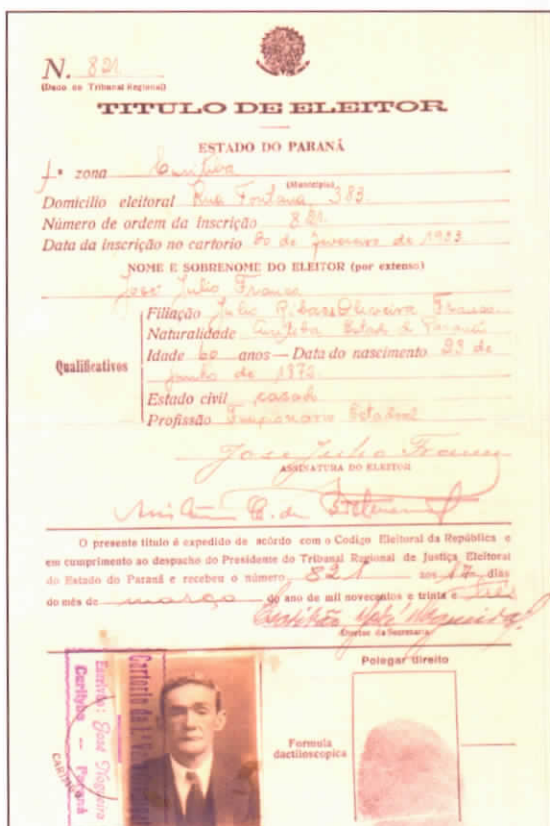 N. 821
(Dado no Tribunal Regional)
TITULO DE ELEITOR
ESTADO DO PARANÁ
1.ª zona Curitiba
(Municipio)
Domicilio eleitoral Rua Fontana, 383.
Número de ordem da inscrição 821.
Data da inscrição no cartorio 20 de fevereiro de 1933
NOME E SOBRENOME DO ELEITOR (por extenso)
José Julio Franco
Qualificativos
Filiação Julio Ribas Oliveira Franco
Naturalidade Curitiba Estado do Paraná
Idade 60 anos — Data do nascimento 23 de
junho de 1872
Estado civil casado
Profissão Funcionario Estadual
José Julio Franco
ASSINATURA DO ELEITOR
O presente título é expedido de acôrdo com o Codigo Eleitoral da República e
em cumprimento ao despacho do Presidente do Tribunal Regional de Justiça Eleitoral
do Estado do Paraná e recebeu o número 821 aos 17 dias
do mês de março do ano de mil novecentos e trinta e três
Diretor da Secretaria
Cartorio da 1.ª
Escrivão: José Nogueira
Curityba — Paraná
Polegar direito
Formula
dactiloscopica